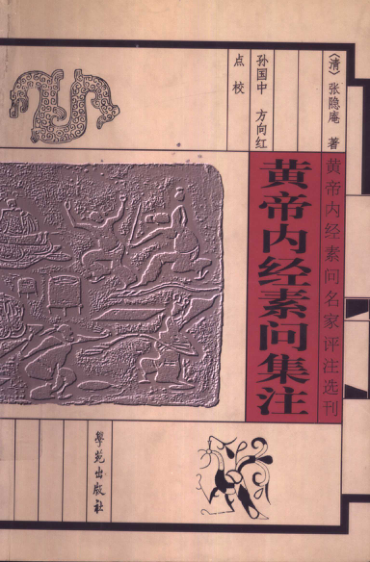 〈清〉张隐庵 著
孙国中 方向红
点校
黄帝内经素问名家评注选刊
黄帝内经素问集注
學苑出版社